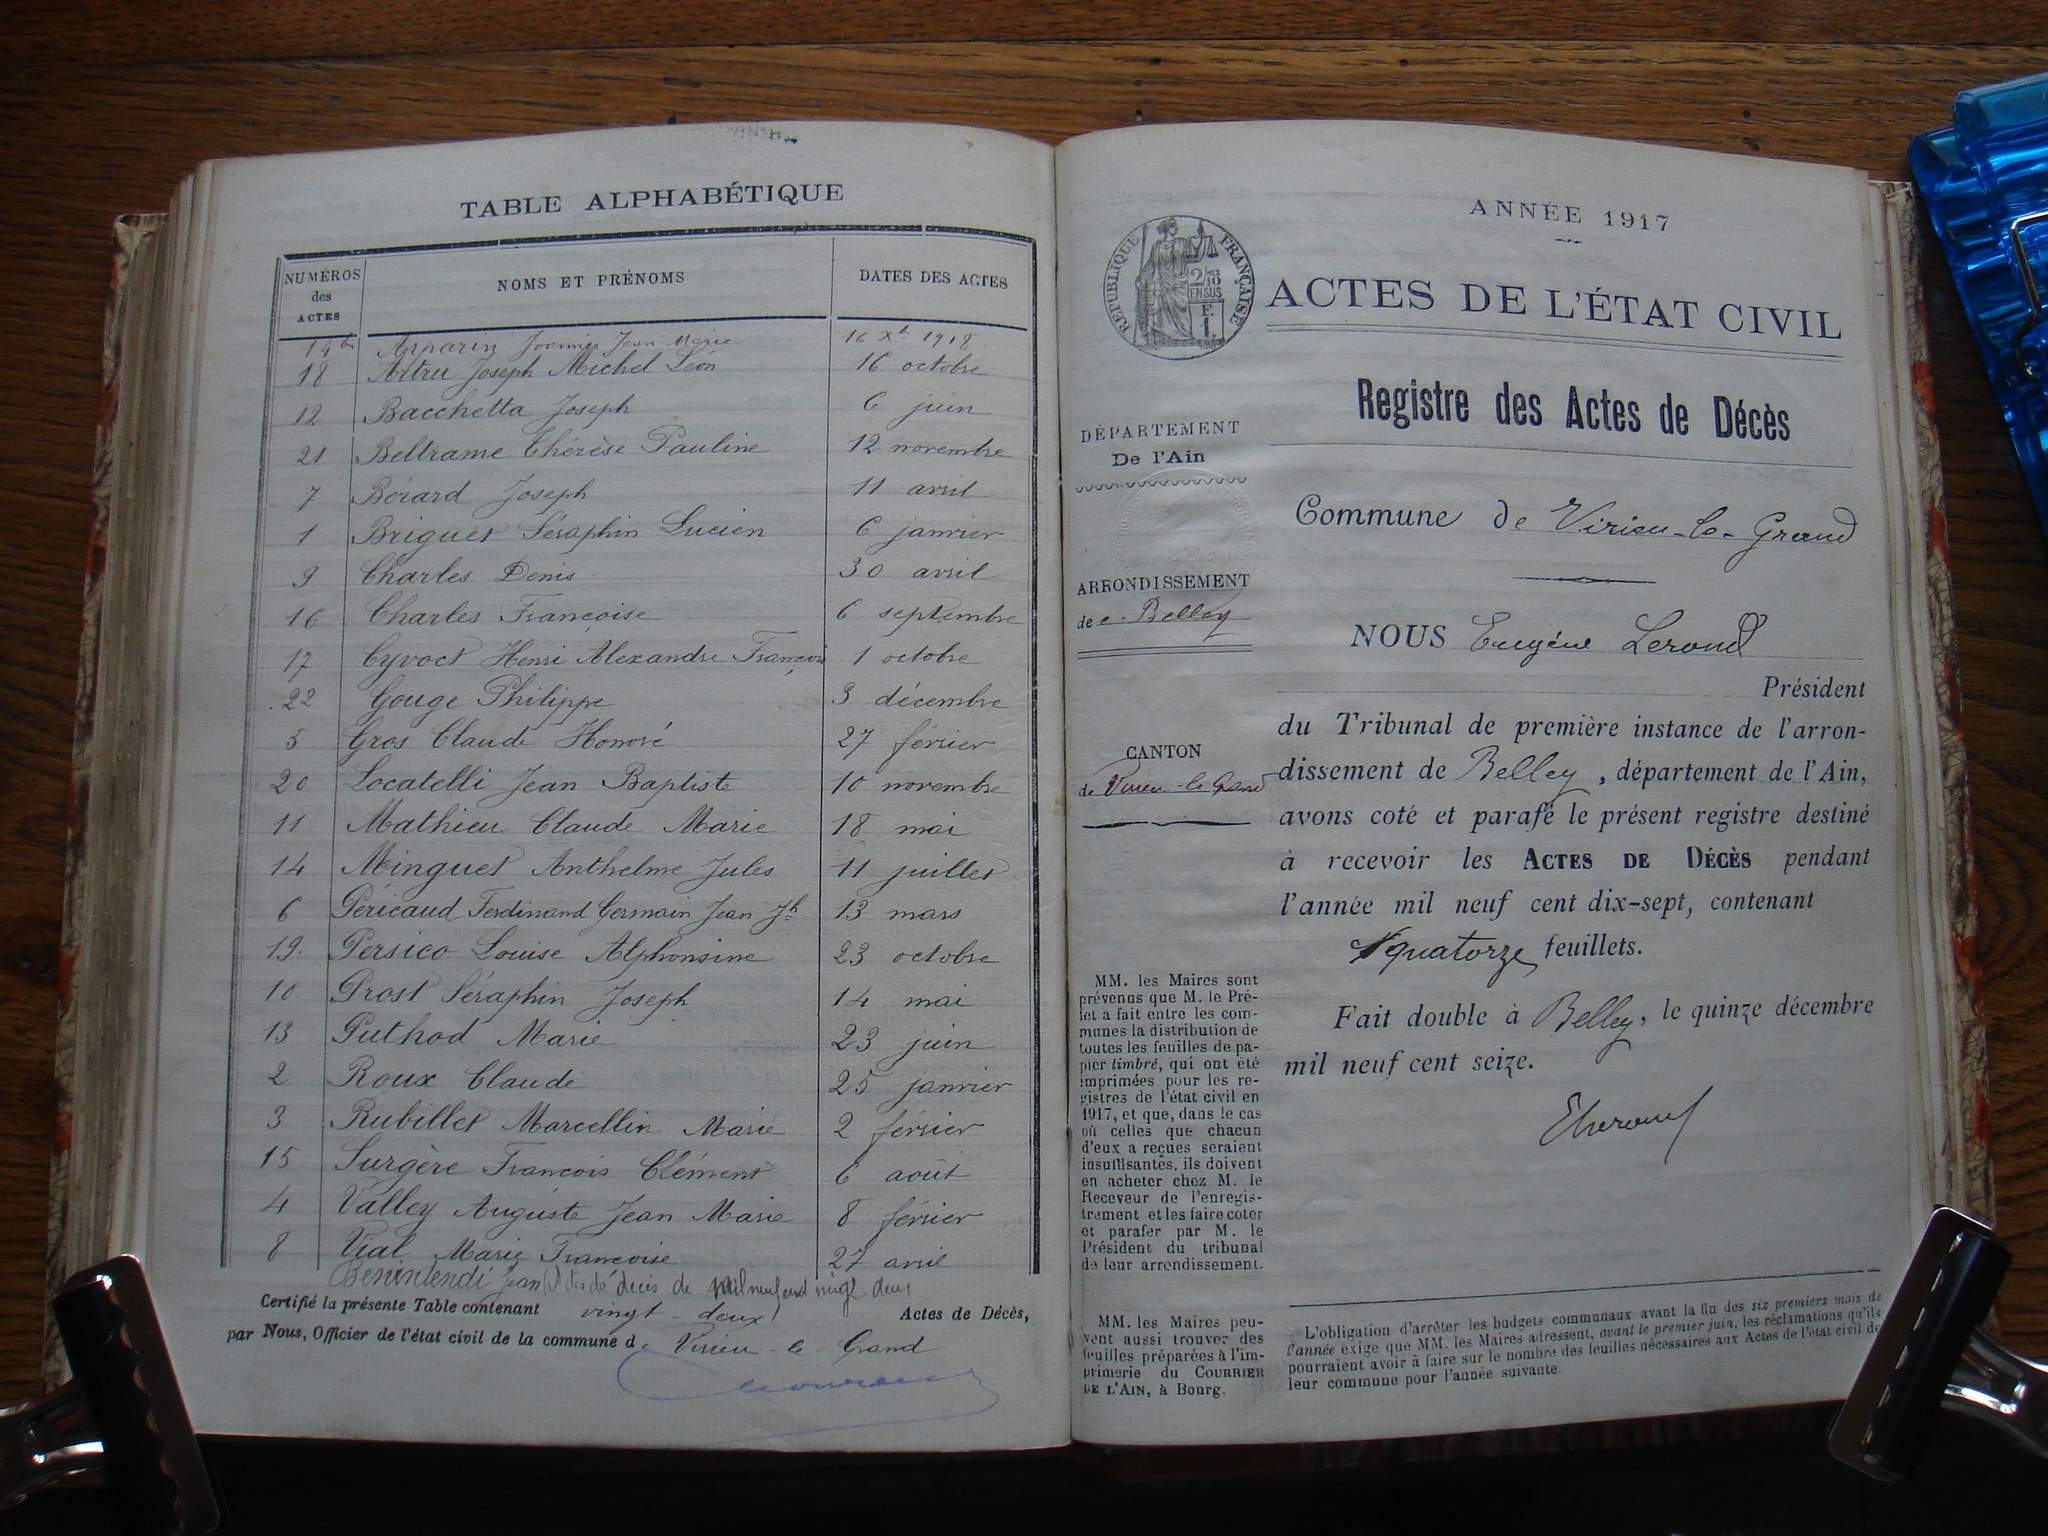 TABLE ALPHABÉTIQUE
NUMÉROS des ACTES NOMS ET PRÉNOMS DATES DES ACTES
14 bis Arparin Joannès Jean Marie 16 Xbre 1918
18 Artru Joseph Michel Léon 16 octobre
12 Bacchetta Joseph 6 juin
21 Beltrame Thérèse Pauline 12 novembre
7 Bérard Joseph 11 avril
1 Briguet Séraphin Lucien 6 janvier
9 Charles Denis 30 avril
16 Charles Françoise 6 septembre
17 Cyvoct Henri Alexandre François 1 octobre
22 Gouge Philippe 3 décembre
5 Gros Claude Honoré 27 février
20 Locatelli Jean Baptiste 10 novembre
11 Mathieu Claude Marie 18 mai
14 Minguet Anthelme Jules 11 juillet
6 Péricaud Ferdinand Germain Jean Jh 13 mars
19. Persico Louise Alphonsine 23 octobre
10 Prost Séraphin Joseph 14 mai
13 Puthod Marie 23 juin
2 Roux Claude 25 janvier
3 Rubillet Marcellin Marie 2 février
15 Surgère François Clément 6 août
4 Valley Auguste Jean Marie 8 février
8 Vial Marie Françoise 27 avril
Benintendi Jean décès de mil neuf cent vingt deux
Certifié la présente Table contenant vingt-deux Actes de Décès,
par Nous, Officier de l'état civil de la commune de Virieu-le-Grand
ANNÉE 1917
RÉPUBLIQUE FRANÇAISE
2/10
EN SUS
F.
1.
ACTES DE L'ÉTAT CIVIL
Registre des Actes de Décès
DÉPARTEMENT
De l'Ain
ARRONDISSEMENT
de Belley
CANTON
de Virieu-le-Grand
MM. les Maires sont
prévenus que M. le Pré-
fet a fait entre les com-
munes la distribution de
toutes les feuilles de pa-
pier timbré, qui ont été
imprimées pour les re-
gistres de l'état civil en
1917, et que, dans le cas
où celles que chacun
d'eux a reçues seraient
insuffisantes, ils doivent
en acheter chez M. le
Receveur de l'enregis-
trement et les faire coter
et parafer par M. le
Président du tribunal
de leur arrondissement.
MM. les Maires peu-
vent aussi trouver des
feuilles préparées à l'im-
primerie du COURRIER
DE L'AIN, à Bourg.
Commune de Virieu-le-Grand
NOUS Eugène Lerond
Président
du Tribunal de première instance de l'arron-
dissement de Belley, département de l'Ain,
avons coté et parafé le présent registre destiné
à recevoir les ACTES DE DÉCÈS pendant
l'année mil neuf cent dix-sept, contenant
quatorze feuillets.
Fait double à Belley, le quinze décembre
mil neuf cent seize.
L'obligation d'arrêter les budgets communaux avant la fin des six premiers mois de
l'année exige que MM. les Maires adressent, avant le premier juin, les réclamations qu'ils
pourraient avoir à faire sur le nombre des feuilles nécessaires aux Actes de l'état civil de
leur commune pour l'année suivante.